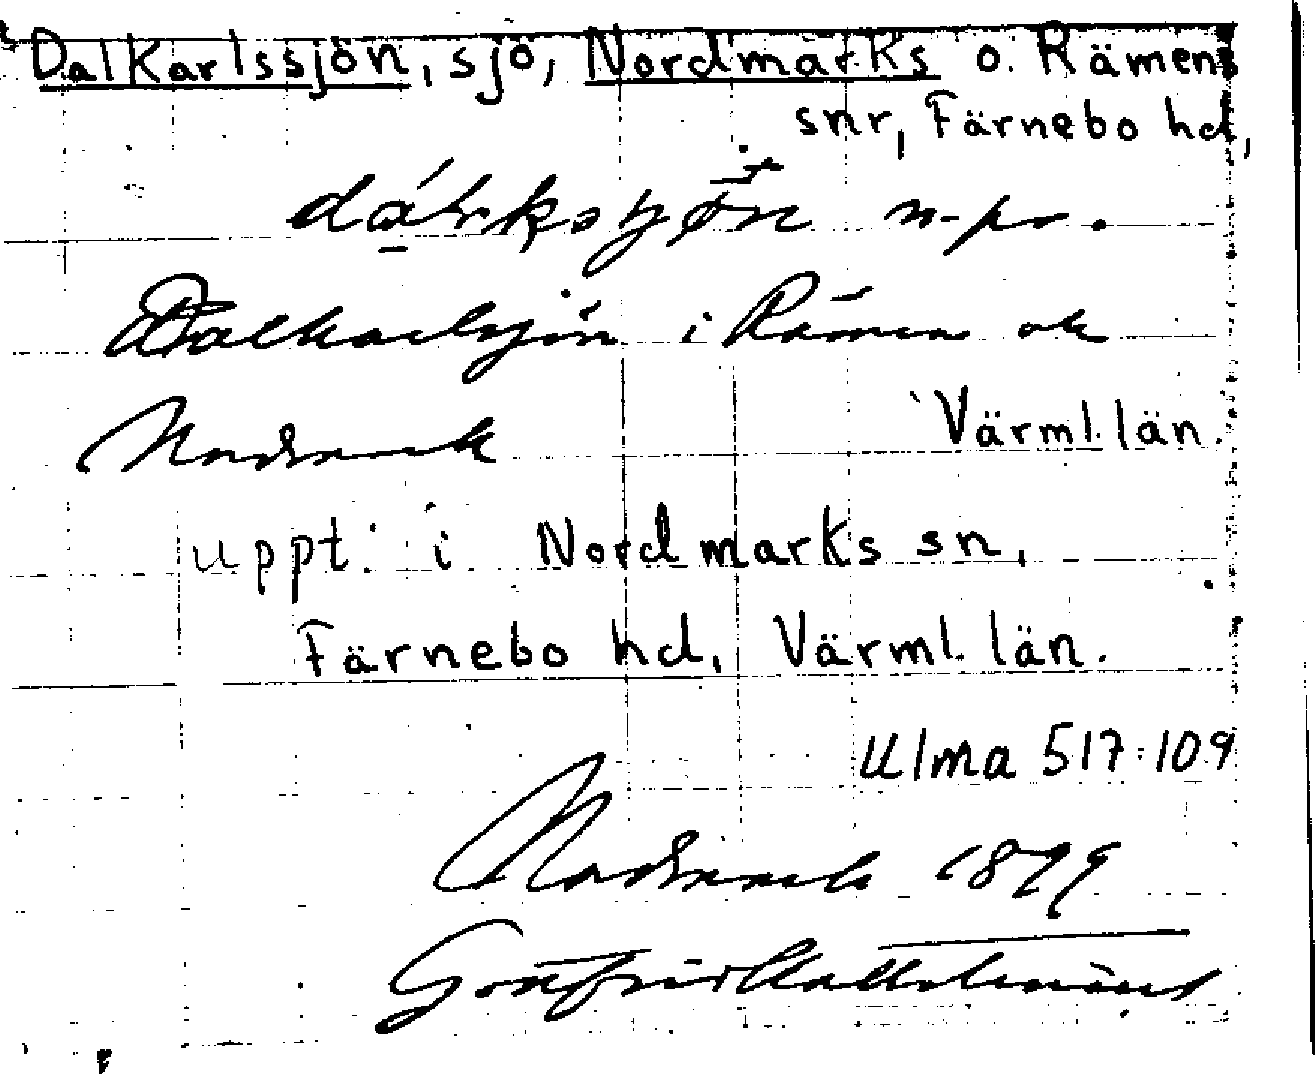 Dalkarlssjön, sjö, Nordmarks o. Rämens
snr, Färnebo hd,
n-pr.
Dalkarlsjön i Rämen ok
Nordmark
Värml. län.
uppt. i Nordmarks sn,
Färnebo hd, Värml. län.
Ulma 517:109
Nordmark 1899
Gottfrid Kallstenius